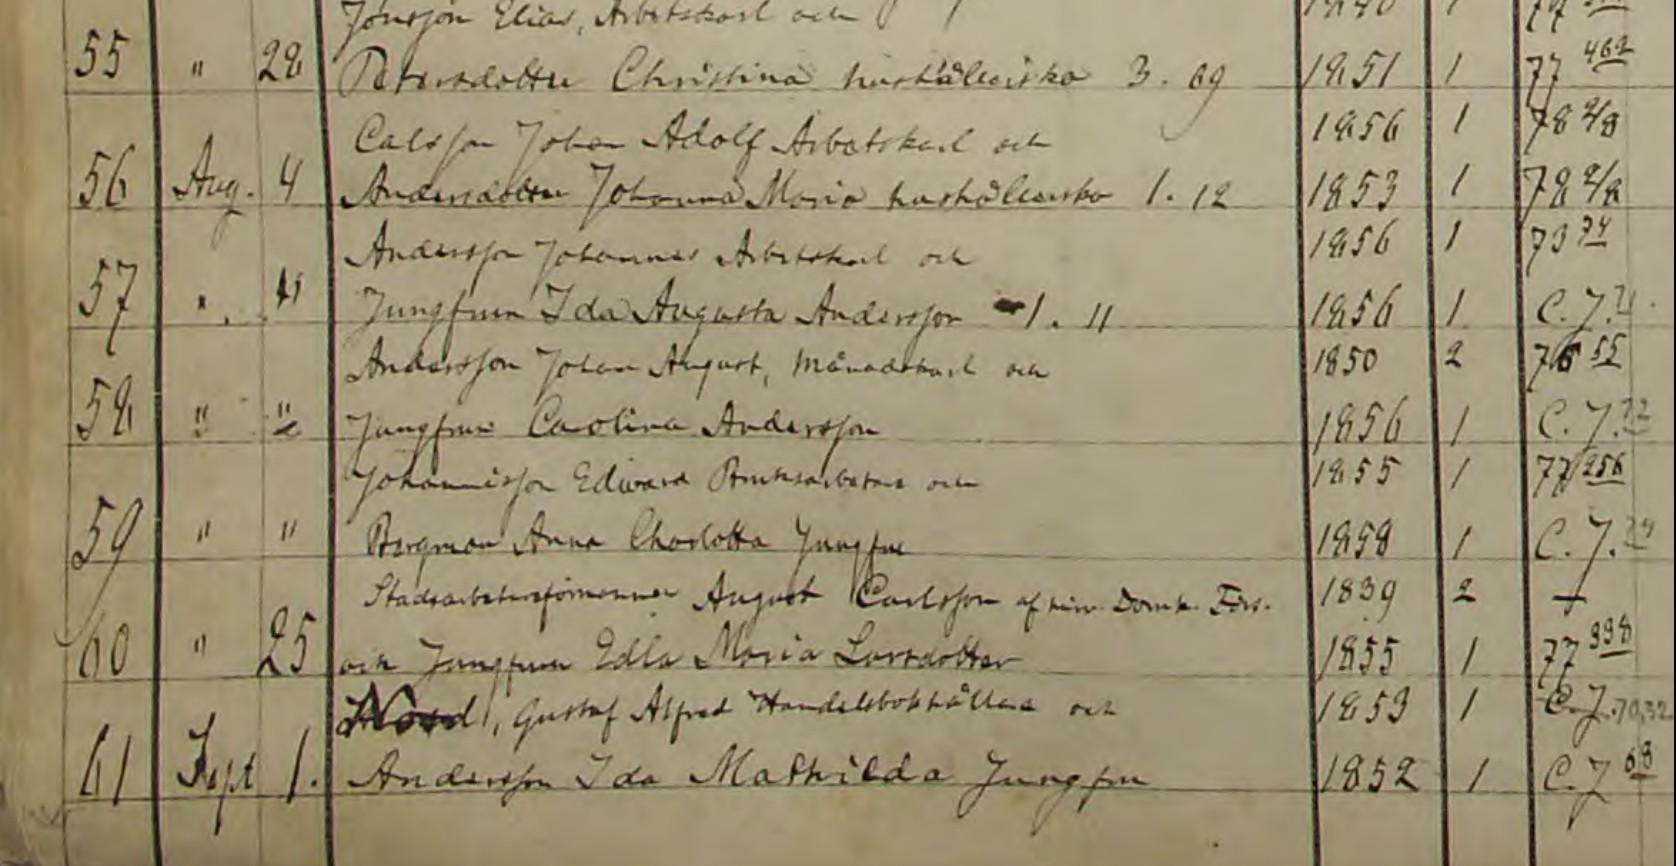 Jonsson Elias, Arbetskarl och 1
55 " 28 Petersdotter Christina hushållerska 3. 69 1851 1 77 462
Calsson Johan Adolf Arbetskarl och 1856 1 78 2/8
56 Aug. 4 Andersdotter Johanna Maria hushållerska 1. 12 1853 1 78 2/8
Andersson Johannes Arbetskarl och 1856 1 73 74
57 " Jungfrun Ida Augusta Andersson 1. 11 1856 1 C. J. 71
Andersson Johan August, Månadskarl och 1850 2 76 55
58 " " Jungfrun Carolina Andersson 1856 1 C. J. 72
Johannisson Edward Bruksarbetare och 1855 1 77 256
59 " " Bergman Anna Charlotta Jungfru 1858 1 C. J.
Stadsarbetareförmannen August Carlsson af härv. Domk. Förs. 1839 2 –
60 " 25 och Jungfrun Edla Maria Larsdotter 1855 1 77 998
Nord, Gustaf Alfred Handelsbokhållare och 1853 1 C. J. 70,32
61 Sept 1. Andersson Ida Mathilda Jungfru 1852 1 C. J 68